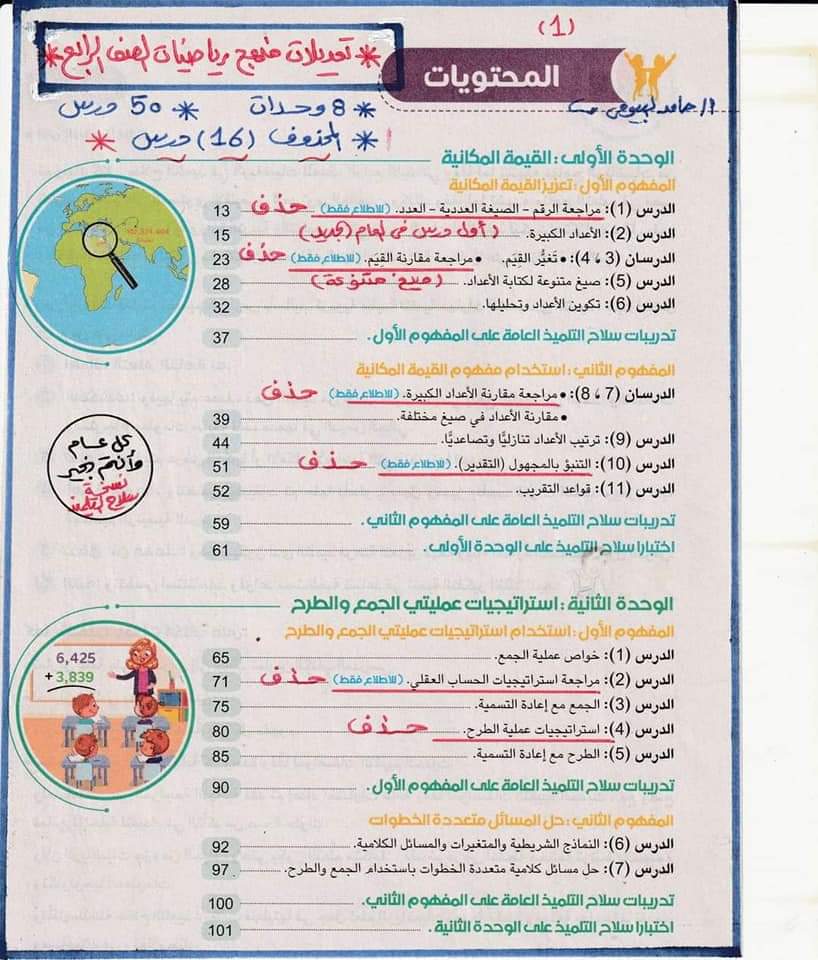 (1)
* تعديلات منهج رياضيات الصف الرابع *
المحتويات
* 8 وحدات * 50 درس
* المحذوف (16) درس *
الوحدة الأولى: القيمة المكانية
المفهوم الأول: تعزيز القيمة المكانية
الدرس (1): مراجعة الرقم – الصيغة العددية – العدد. (للاطلاع فقط) حذف 13
الدرس (2): الأعداد الكبيرة. (أول درس في العام الجديد) 15
الدرسان (3 ، 4): • تَغيُّر القِيَم. • مراجعة مقارنة القِيَم. (للاطلاع فقط) حذف 23
الدرس (5): صيغ متنوعة لكتابة الأعداد. (صيغ متنوعة) 28
الدرس (6): تكوين الأعداد وتحليلها. 32
تدريبات سلاح التلميذ العامة على المفهوم الأول. 37
المفهوم الثاني: استخدام مفهوم القيمة المكانية
الدرسان (7 ، 8): • مراجعة مقارنة الأعداد الكبيرة. (للاطلاع فقط) حذف
• مقارنة الأعداد في صيغ مختلفة. 39
الدرس (9): ترتيب الأعداد تنازليًّا وتصاعديًّا. 44
الدرس (10): التنبؤ بالمجهول (التقدير). (للاطلاع فقط) حذف 51
الدرس (11): قواعد التقريب. 52
تدريبات سلاح التلميذ العامة على المفهوم الثاني. 59
اختبارا سلاح التلميذ على الوحدة الأولى. 61
كل عام
وأنتم بخير
نسخة
سلاح التلميذ
الوحدة الثانية: استراتيجيات عمليتي الجمع والطرح
المفهوم الأول: استخدام استراتيجيات عمليتي الجمع والطرح
الدرس (1): خواص عملية الجمع. 65
الدرس (2): مراجعة استراتيجيات الحساب العقلي. (للاطلاع فقط) حذف 71
الدرس (3): الجمع مع إعادة التسمية. 75
الدرس (4): استراتيجيات عملية الطرح. حذف 80
الدرس (5): الطرح مع إعادة التسمية. 85
تدريبات سلاح التلميذ العامة على المفهوم الأول. 90
6,425
+ 3,839
المفهوم الثاني: حل المسائل متعددة الخطوات
الدرس (6): النماذج الشريطية والمتغيرات والمسائل الكلامية. 92
الدرس (7): حل مسائل كلامية متعددة الخطوات باستخدام الجمع والطرح. 97
تدريبات سلاح التلميذ العامة على المفهوم الثاني. 100
اختبارا سلاح التلميذ على الوحدة الثانية. 101